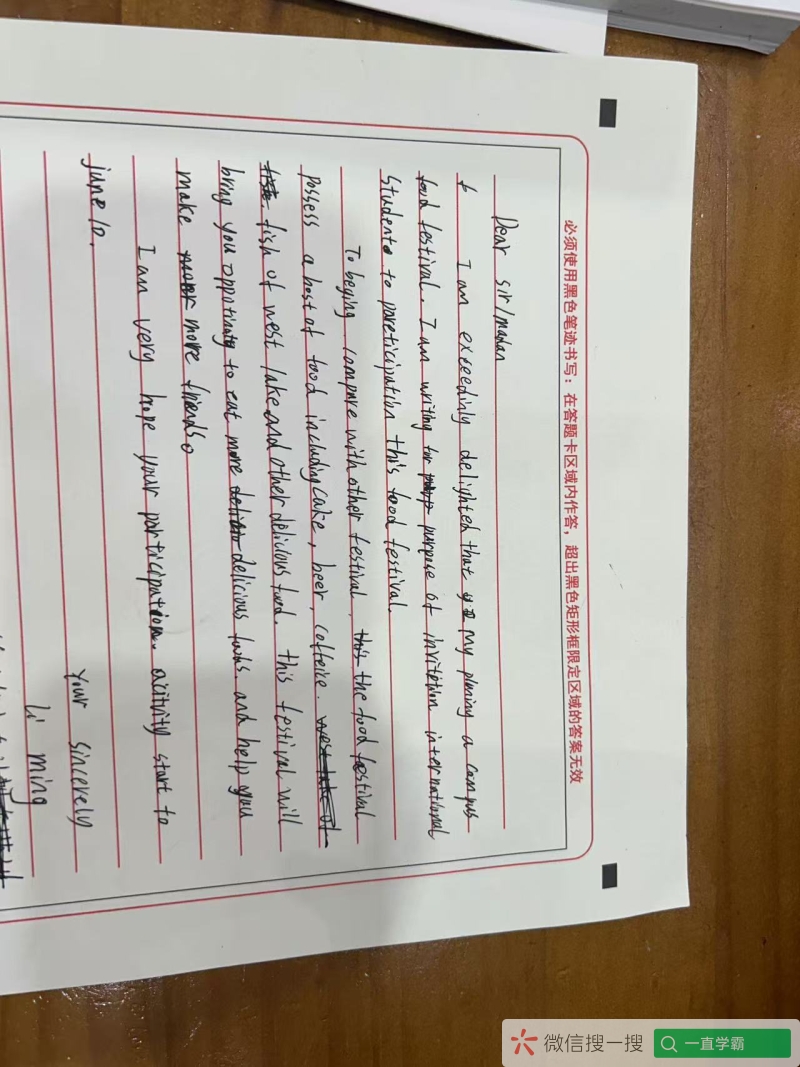 必须使用黑色笔迹书写：在答题卡区域内作答，超出黑色矩形框限定区域的答案无效
Dear sir/madan
I am exceedinly delighted that my planing a campus
food festival. I am writing for purpose of invitetion international
Students to pareticipatitn this food festival.
To beging compare with other festival, the food festival
possess a host of food including cake, beer, coffeice.
fish of west lake and other delicious food. this festival will
bring you oppotinaty to eat more delicious foods. and help you
make more friends。
I am very hope your participation. acitivity start to
june 10.
Your sincerely
li ming
微信搜一搜
一直学霸